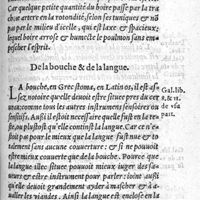 Car quelque petite quantité du boire passe par la tra
chee artere en la rotondité, selon ses tuniques & nō
pas par le milieu d'icelle, qui est laxe & spacieux;
lequel boire arrose & humecte le poulmon sans em-
pescher l'esprit.
De la bouche & de la langue.
LA bouche, en Grec stoma, en Latin os, il est as-
sez notoire quelle deuoit estre situee pres du cer
ueau: comme tous les autres instrumens seruans
sensitifs. Aussi il estoit necessaire quelle fust en la te-
ste, ou plustost qu'elle continst la langue. Car ce n'est
pas pour le mieux que la langue fust nue & to
talement sans aucune couuerture: & si ne pouuoit
estre mieux couuerte que de la bouche. Pource que
la langue illec situee pouuoit mieux iuger des saueurs
& estre instrument pour parler: ioinct aussi
qu'elle deuoit grandement ayder à mascher & à a-
ualler les viandes. Ainsi la langue est enclose en la
Gal. lib.
8. & 11.
de vsu
part.